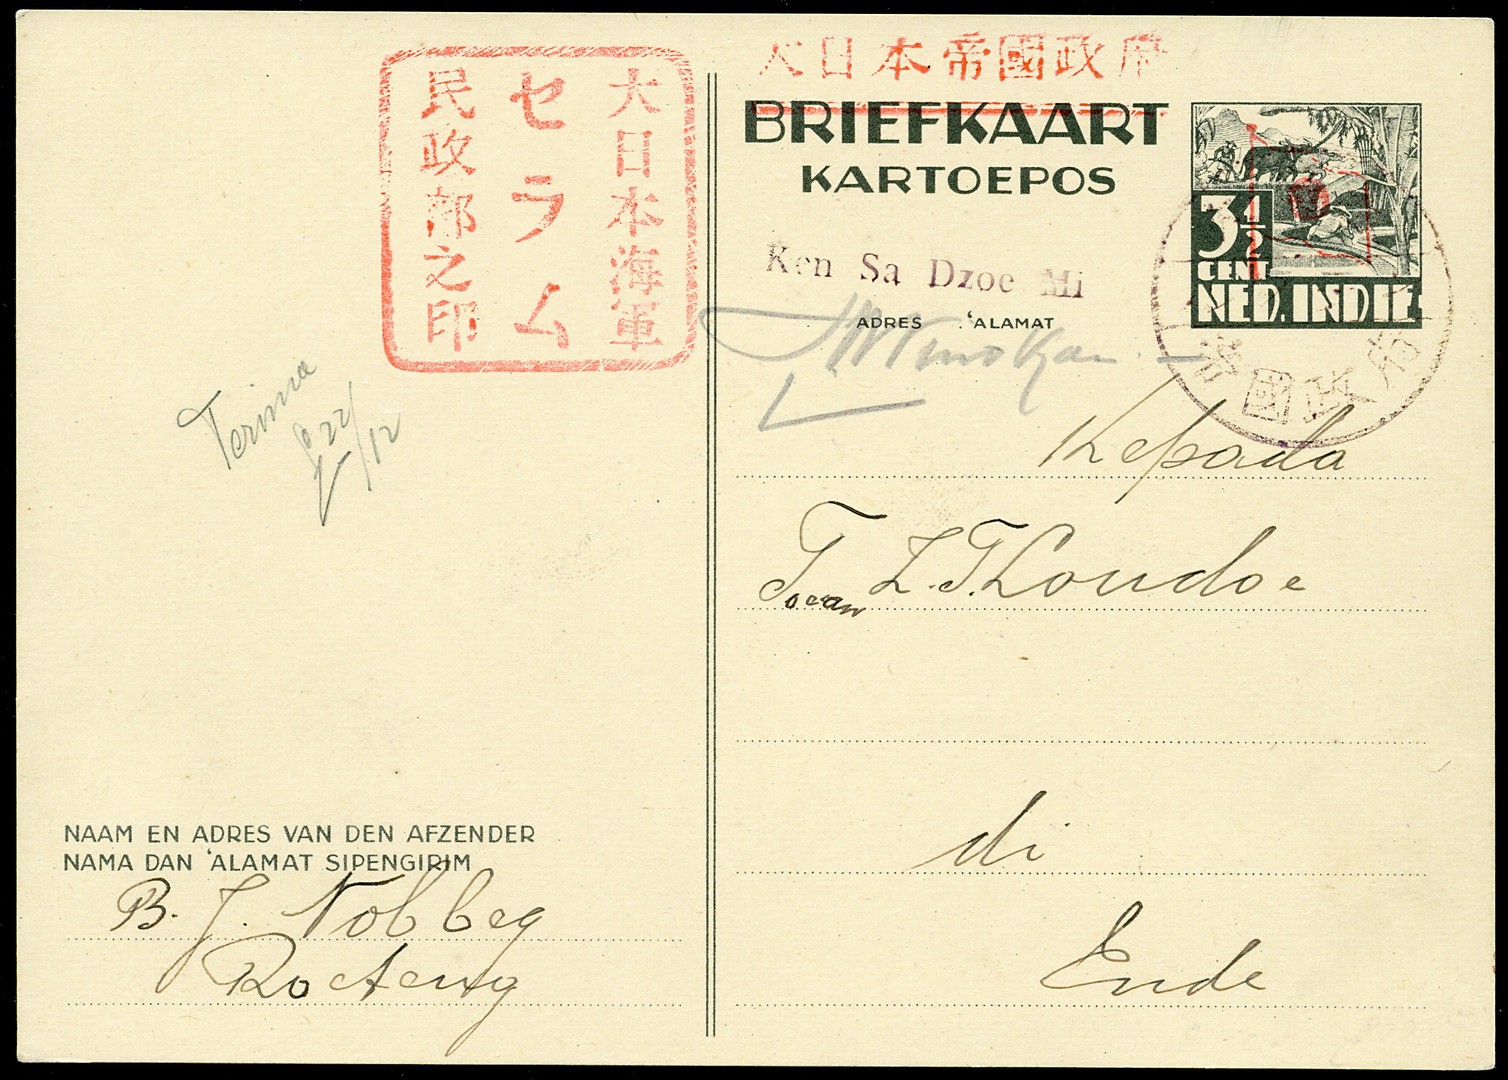 大日本海軍
セラム
民政部之印
大日本帝國政府
BRIEFKAART
KARTOEPOS
3½
CENT
NED. INDIË
Ken Sa Dzoe Mi
ADRES 'ALAMAT
國政府
Terima
22/12
Kepada
Toean Z. T. Loudoe
di
Ende
NAAM EN ADRES VAN DEN AFZENDER
NAMA DAN 'ALAMAT SIPENGIRIM
B. J. Nobbeg
Roeteng